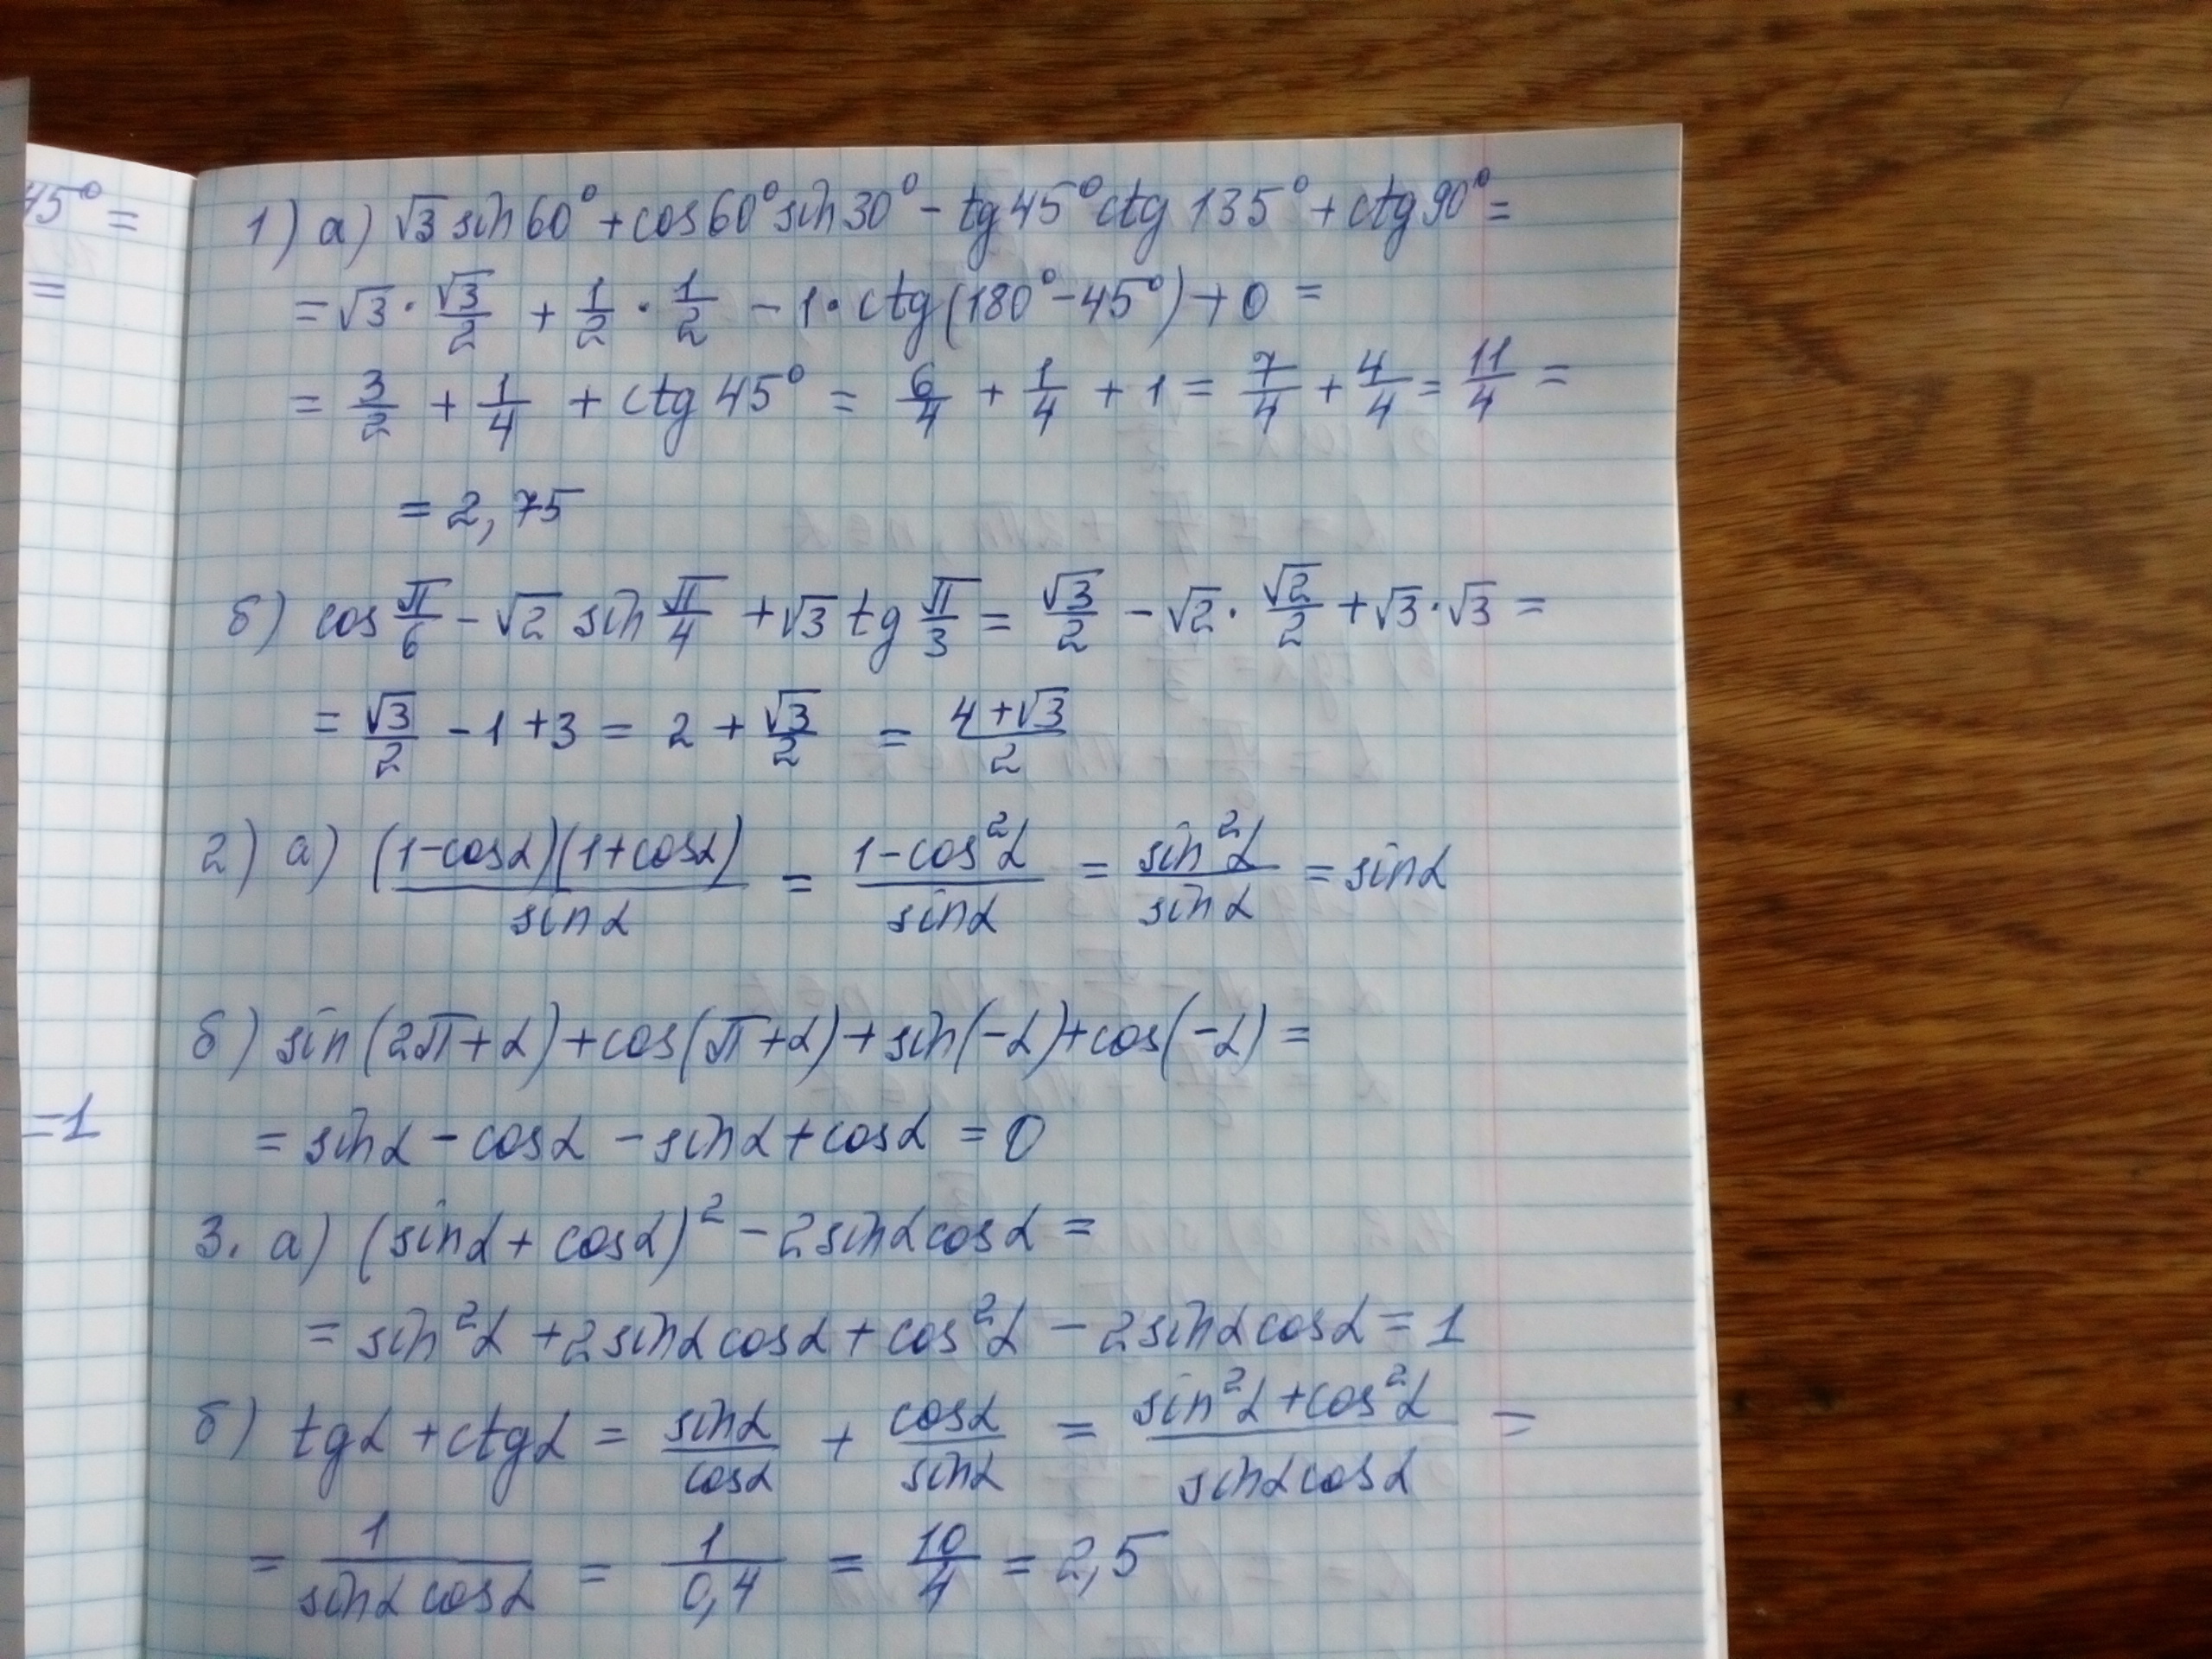 45° =
=
=1
1) а) √3 sin 60° + cos 60° sin 30° - tg 45° ctg 135° + ctg 90° =
= √3 · √3/2 + 1/2 · 1/2 - 1 · ctg (180° - 45°) + 0 =
= 3/2 + 1/4 + ctg 45° = 6/4 + 1/4 + 1 = 7/4 + 4/4 = 11/4 =
= 2,75
б) cos π/6 - √2 sin π/4 + √3 tg π/3 = √3/2 - √2 · √2/2 + √3 · √3 =
= √3/2 - 1 + 3 = 2 + √3/2 = (4 + √3)/2
2) а) (1-cosα)(1+cosα)/sinα = (1-cos²α)/sinα = sin²α/sinα = sinα
б) sin(2π+α) + cos(π+α) + sin(-α) + cos(-α) =
= sinα - cosα - sinα + cosα = 0
3. а) (sinα + cosα)² - 2sinαcosα =
= sin²α + 2sinαcosα + cos²α - 2sinαcosα = 1
б) tgα + ctgα = sinα/cosα + cosα/sinα = (sin²α + cos²α)/(sinαcosα) =
= 1/(sinαcosα) = 1/0,4 = 10/4 = 2,5